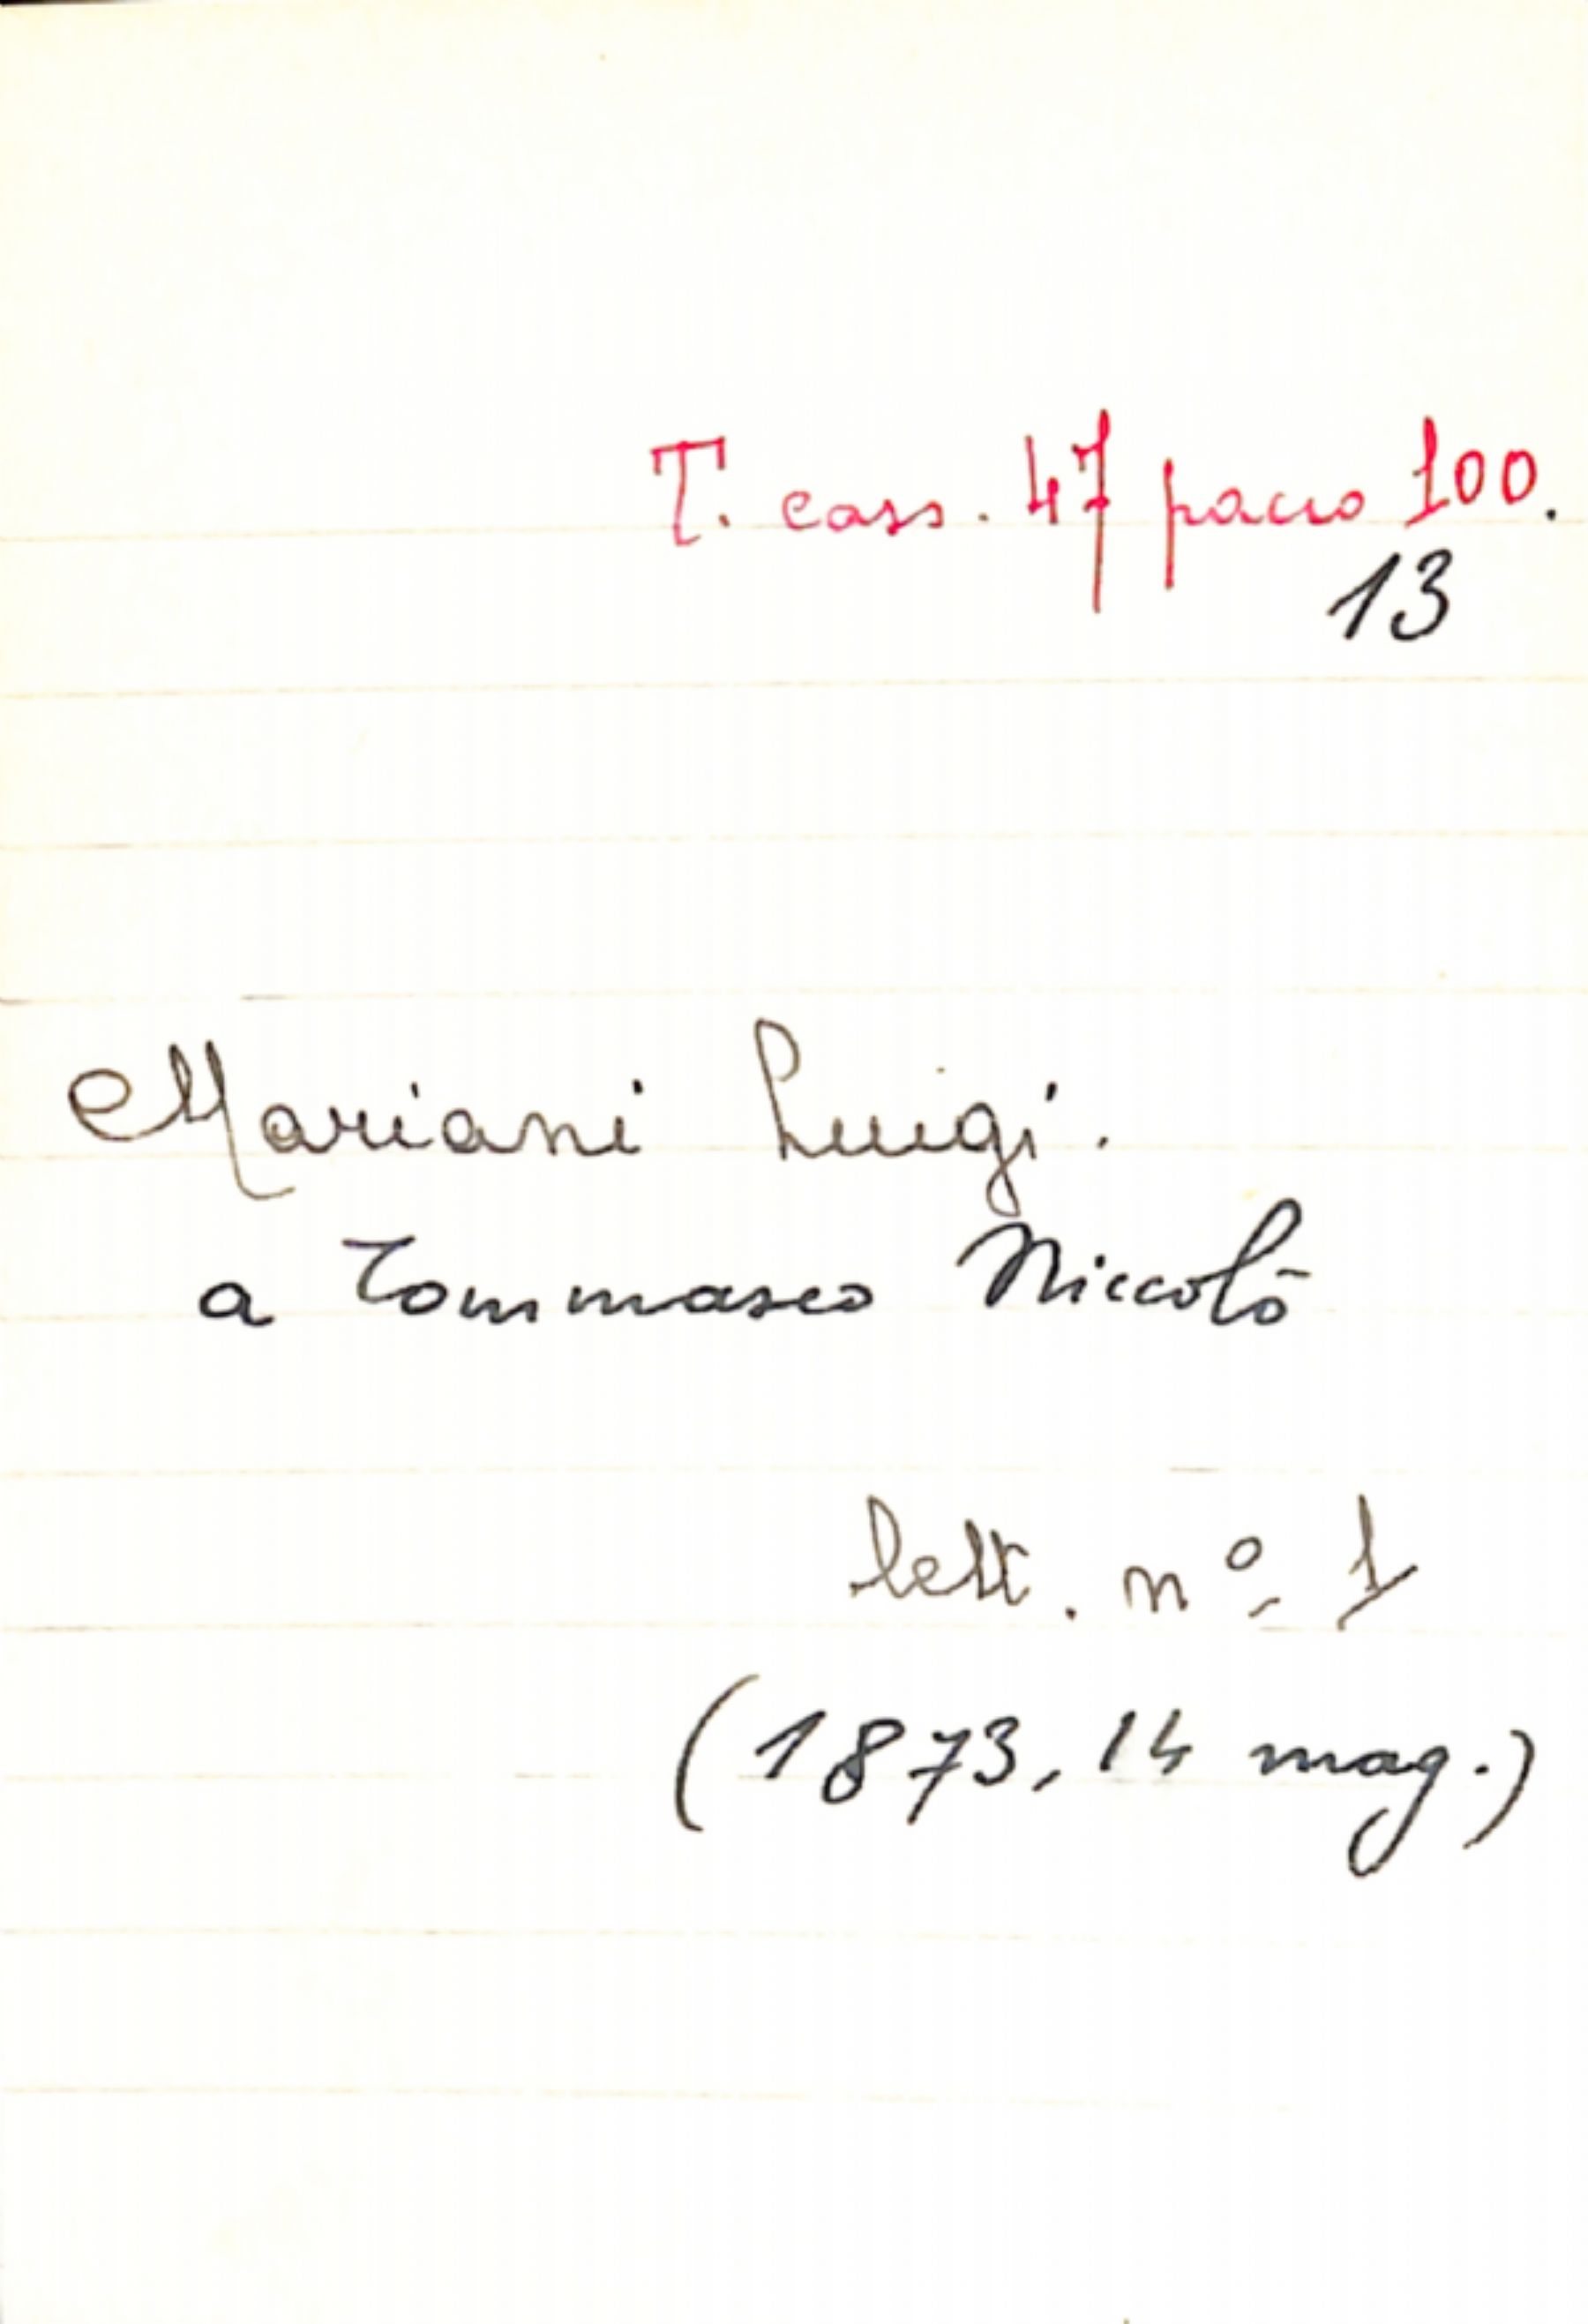 T. cass. 47 pacco 100.
13
Mariani Luigi.
a Tommaseo Niccolò
lett. nº 1
(1873, 14 mag.)